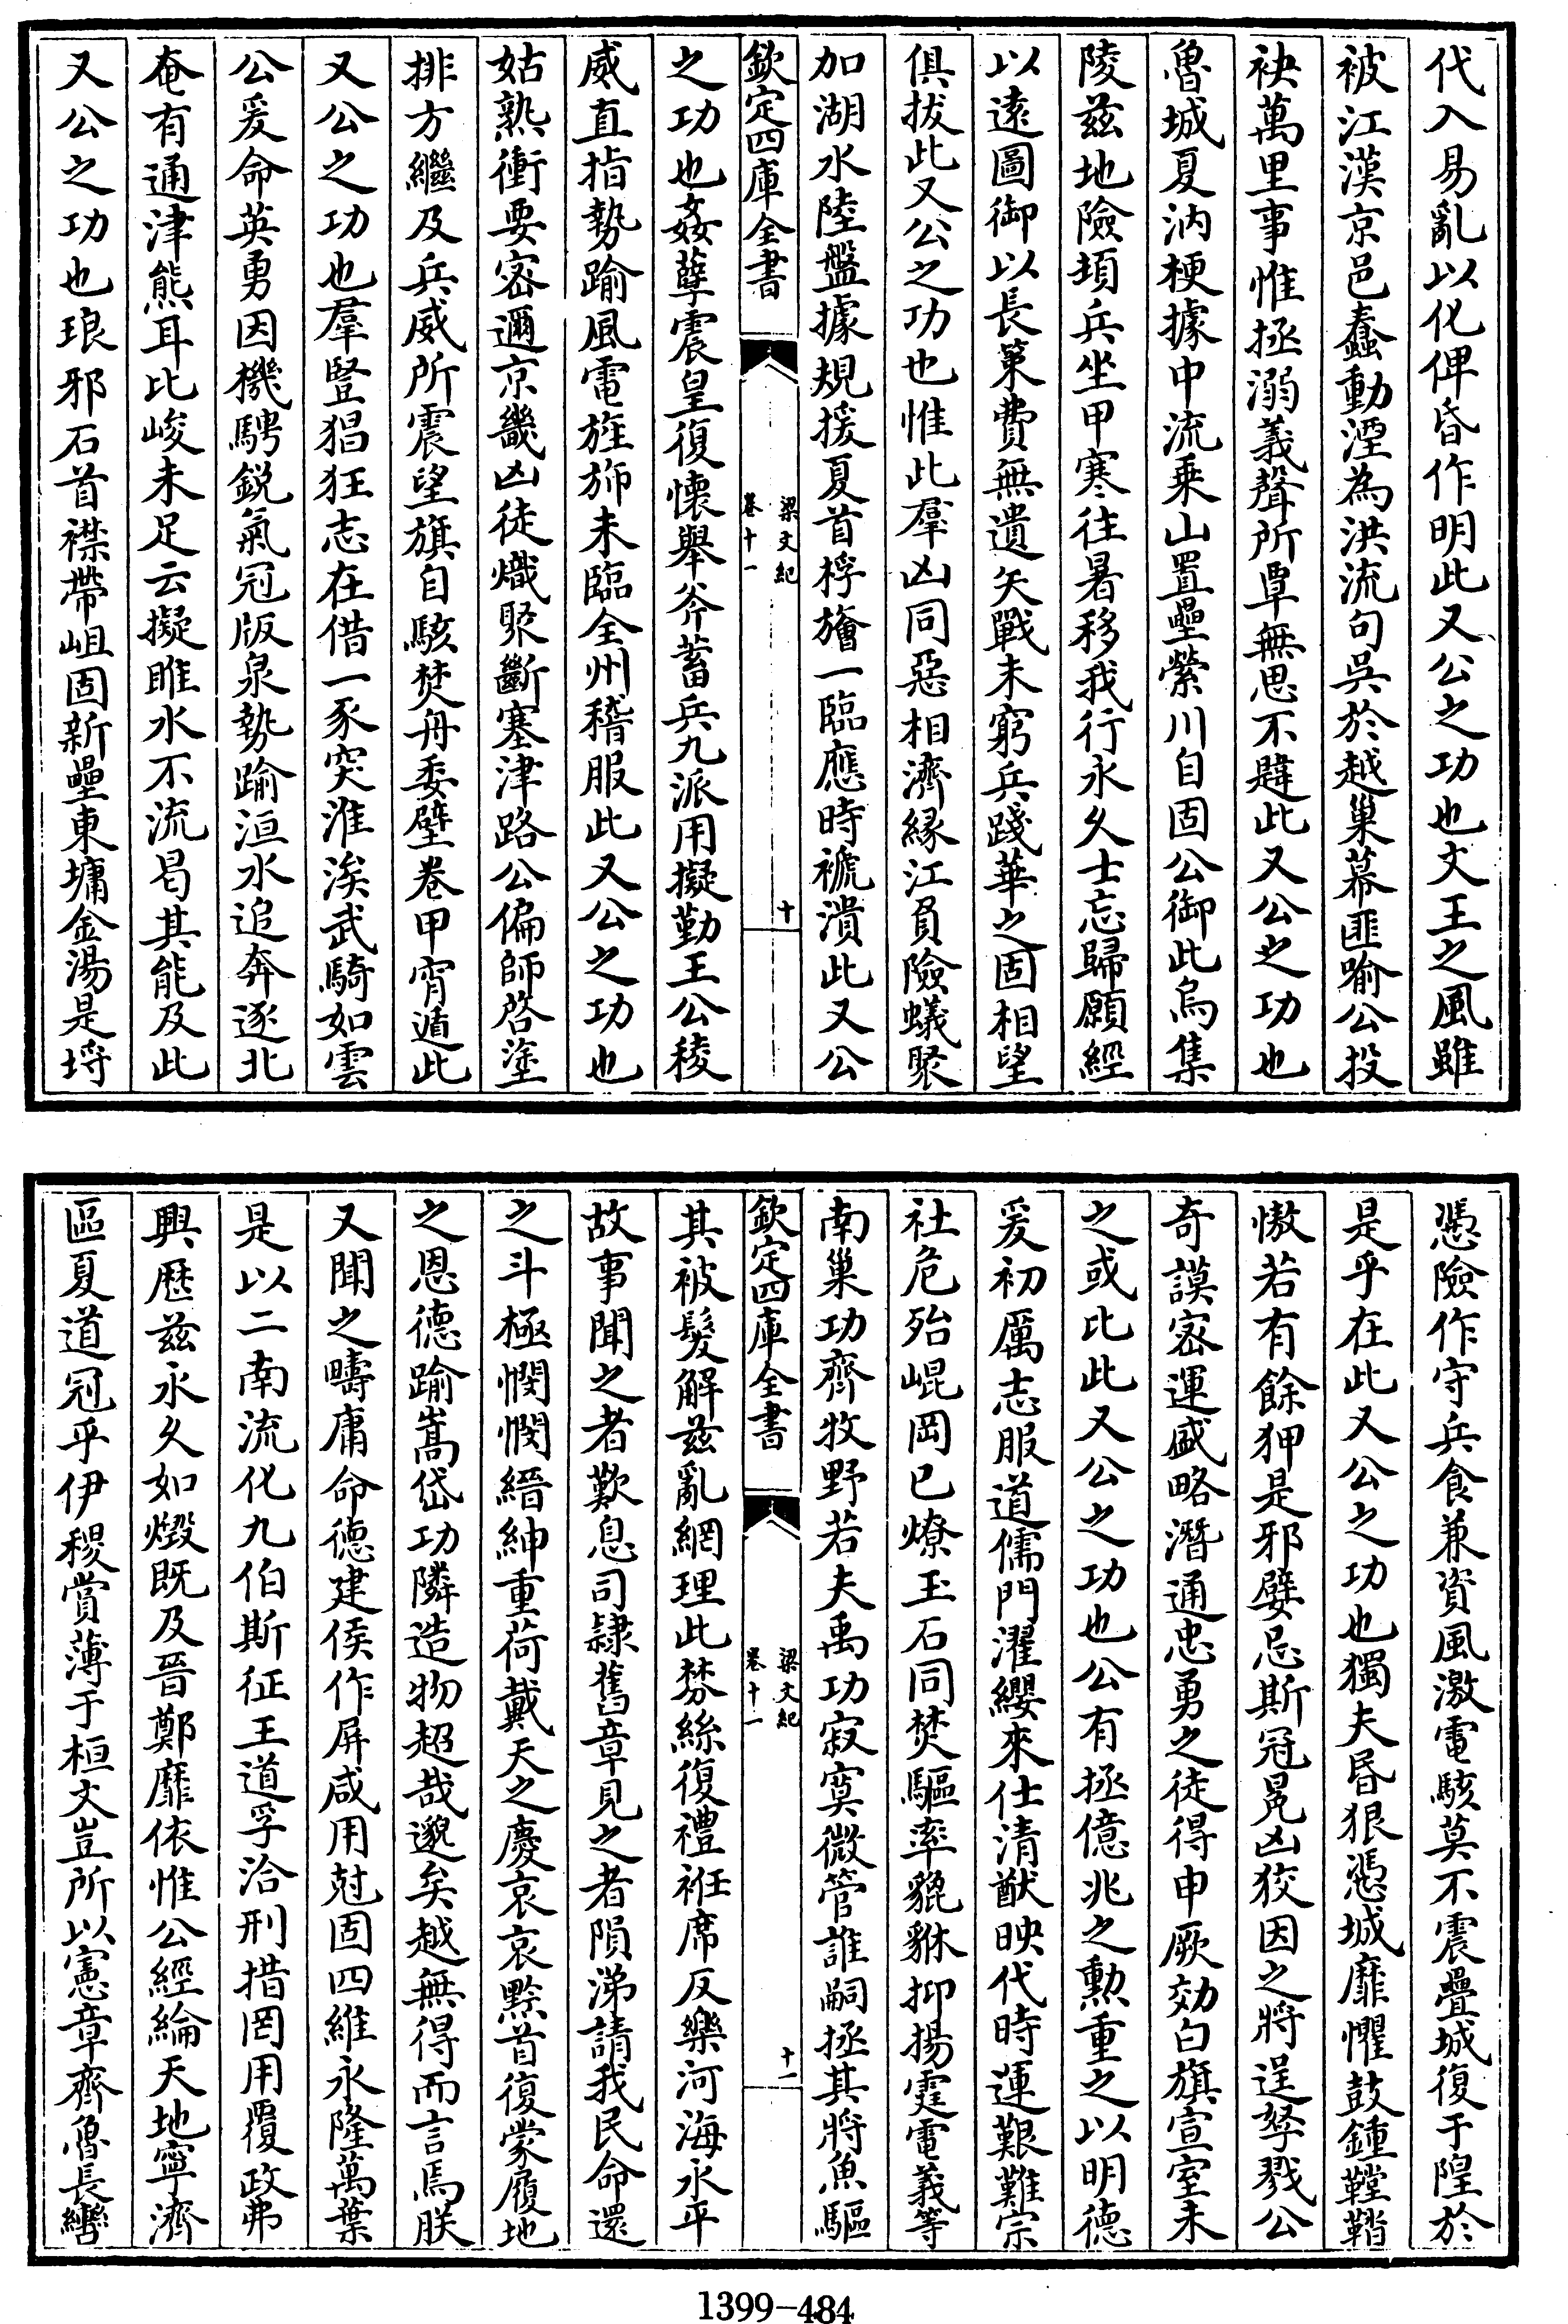 代入易亂以化俾昏作明此又公之功也文王之風雖
被江漢京邑蠢動湮為洪流句吳於越巢幕匪喻公投
袂萬里事惟拯溺義聲所覃無思不韙此又公之功也
魯城夏汭梗據中流乗山置壘縈川自固公御此烏集
陵兹地險頓兵坐甲寒往暑移我行永久士忘歸願經
以遠圖御以長策費無遺矢戰未窮兵踐華之固相望
俱拔此又公之功也惟此羣凶同惡相濟縁江負險蟻聚
加湖水陸盤據規援夏首桴旝一臨應時褫潰此又公
欽定四庫全書
梁文紀
卷十一
十
之功也姦孽震皇復懷舉斧蓄兵九派用擬勤王公稜
威直指勢踰風電旌斾未臨全州稽服此又公之功也
姑熟衝要宻邇京畿凶徒熾聚斷塞津路公偏師啓塗
排方繼及兵威所震望旗自駭焚舟委壁卷甲宵遁此
又公之功也羣豎猖狂志在借一豕突淮涘武騎如雲
公爰命英勇因機騁鋭氣冠版泉勢踰洹水追奔逐北
奄有通津熊耳比峻未足云擬睢水不流曷其能及此
又公之功也琅邪石首襟帶岨固新壘東墉金湯是埒
憑險作守兵食兼資風激電駭莫不震疊城復于隍於
是乎在此又公之功也獨夫昬狠憑城靡懼鼓鍾鞺鞜
慠若有餘狎是邪嬖忌斯冠冕凶狡因之將逞孥戮公
奇謨宻運盛略潛通忠勇之徒得申厥効白旗宣室未
之或比此又公之功也公有拯億兆之勲重之以明德
爰初厲志服道儒門濯纓來仕清猷映代時運艱難宗
社危殆崐岡已燎玉石同焚驅率貔貅抑揚霆電義等
南巢功齊牧野若夫禹功寂寞微管誰嗣拯其將魚驅
欽定四庫全書
梁文紀
卷十一
十一
其被髮解兹亂網理此棼絲復禮袵席反樂河海永平
故事聞之者歎息司隷舊章見之者隕涕請我民命還
之斗極憫憫縉紳重荷戴天之慶哀哀黔首復蒙履地
之恩德踰嵩岱功隣造物超哉邈矣越無得而言焉朕
又聞之疇庸命德建侯作屏咸用尅固四維永隆萬葉
是以二南流化九伯斯征王道孚洽刑措罔用覆政弗
興歴兹永久如燬既及晉鄭靡依惟公經綸天地寧濟
區夏道冠乎伊稷賞薄于桓文豈所以憲章齊魯長轡
1399-484